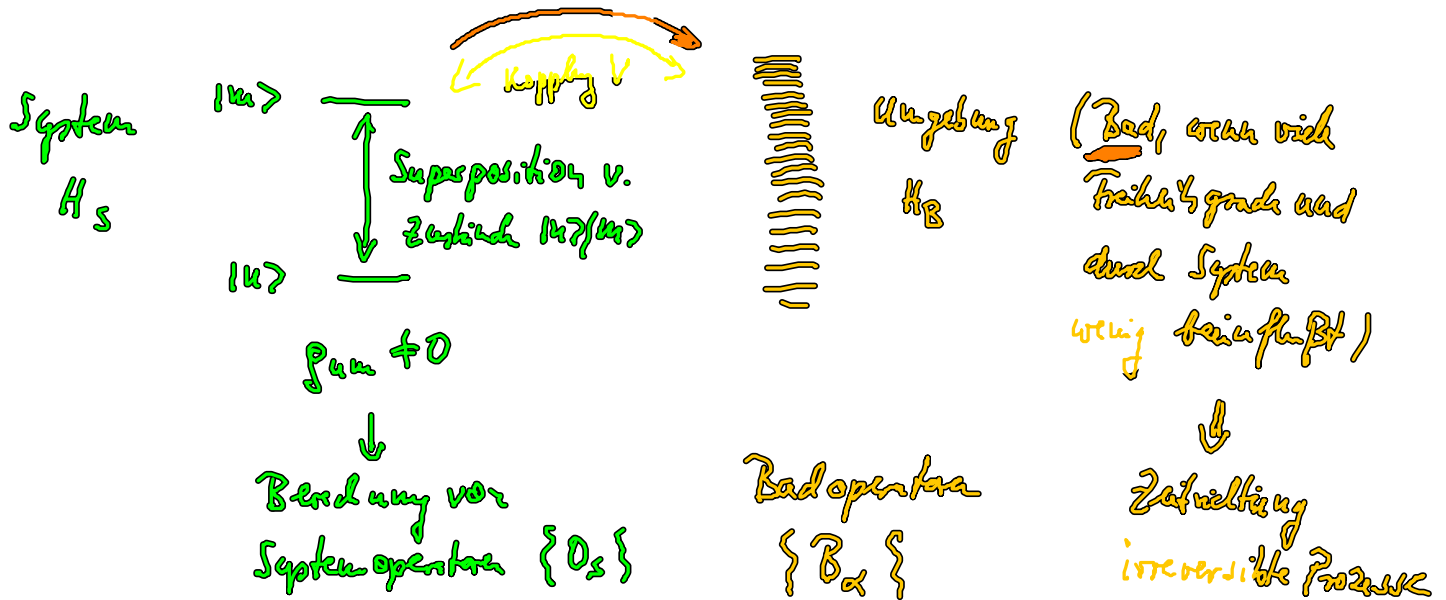 System
H_S
|m>
Superposition v.
Zustände |n>,|m>
|n>
ρ_nm ≠ 0
Berechnung von
Systemoperatoren {O_s}
Kopplung V
Umgebung
H_B
Badoperatoren
{B_α}
(Bad, wenn viele
Freiheitsgrade und
durch System
wenig beeinflußt)
Zeitrichtung
irreversible Prozesse